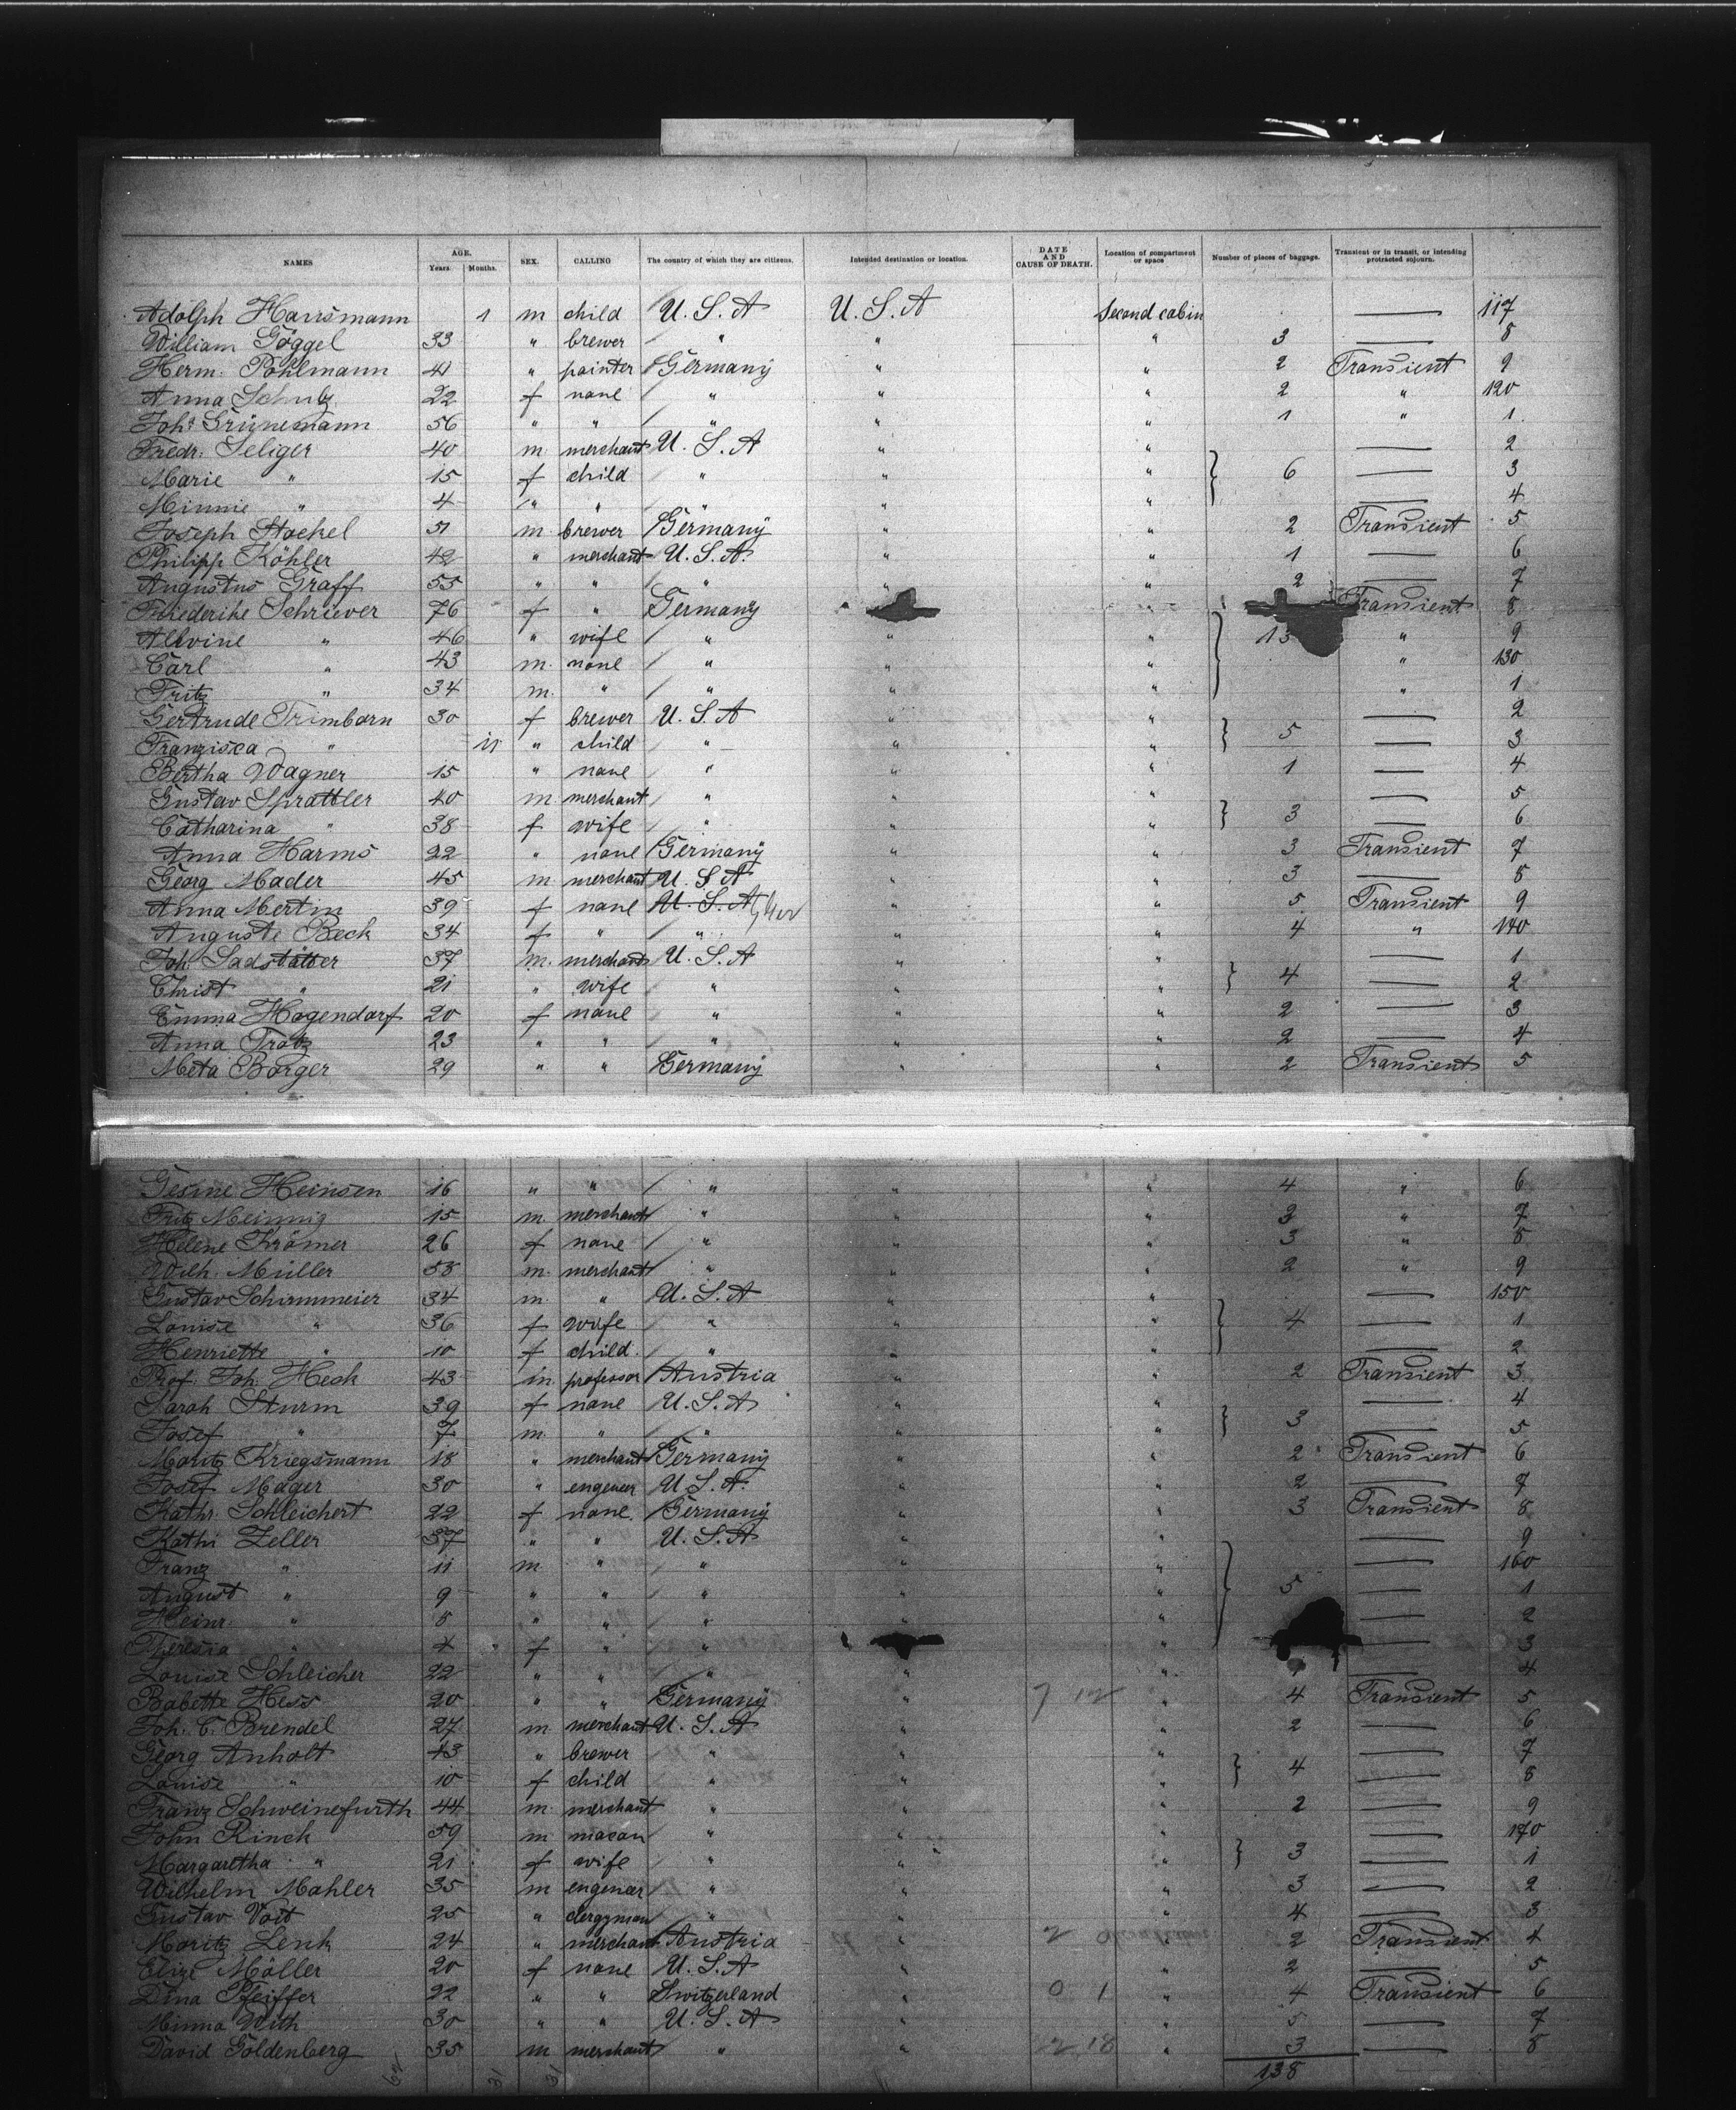 NAMES AGE. Years. Months. SEX. CALLING The country of which they are citizens. Intended destination or location. DATE AND CAUSE OF DEATH. Location of compartment or space Number of pieces of baggage. Transient or in transit, or intending protracted sojourn.
Adolph Hansmann 1 m child U.S.A U.S.A Second cabin — 117
William Göggel 33 " brewer " " " 3 — 8
Herm. Pohlmann 41 " painter Germany " " 2 Transient 9
Anna Schulz 22 f none " " " 2 " 120
Joh. Grünemann 56 " " " " " 1 " 1
Fredr. Seliger 40 m merchant U.S.A " " — 2
Marie " 15 f child " " " 6 — 3
Minnie " 4 " " " " " — 4
Joseph Stockel 51 m brewer Germany " " 2 Transient 5
Philipp Köhler 42 " merchant U.S.A. " " 1 — 6
Augustus Graff 55 " " " " " 2 — 7
Friederike Schriever 76 f " Germany " Transient 8
Alwine " 46 " wife " " " 13 " 9
Carl " 43 m. none " " " " 130
Fritz " 34 m. " " " " " 1
Gertrude Trimborn 30 f brewer U.S.A " " — 2
Franzisca " 11 " child " " " 5 — 3
Bertha Wagner 15 " none " " " 1 — 4
Gustav Sprattler 40 m merchant " " " — 5
Catharina " 38 f wife " " " 3 — 6
Anna Harms 22 " none Germany " " 3 Transient 7
Georg Mader 45 m merchant U.S.A " " 3 — 8
Anna Mertin 39 f none U.S.A " " 5 Transient 9
Auguste Beck 34 f " " " " 4 " 140
Joh. Sadstätter 37 m. merchant U.S.A " " — 1
Christ " 21 " wife " " " 4 — 2
Emma Hagendorf 20 f none " " " 2 — 3
Anna Trotz 23 " " " " " 2 — 4
Meta Borger 29 " " Germany " " 2 Transient 5
Gesine Heinsen 16 " " " " " 4 " 6
Fritz Meinnig 15 m merchant " " " 3 " 7
Helene Krömer 26 f none " " " 3 " 8
Wilh. Müller 58 m merchant " " " 2 " 9
Gustav Schirmmeier 34 m " U.S.A " " — 150
Louise " 36 f wife " " " 4 — 1
Henriette " 10 f child " " " — 2
Prof. Joh. Heck 43 m professor Austria " " 2 Transient 3
Sarah Sturm 39 f none U.S.A " " — 4
Josef " 7 m " " " " 3 — 5
Moritz Kriegsmann 18 " merchant Germany " " 2 Transient 6
Josef Mager 30 " engeneer U.S.A. " " 2 — 7
Kathr. Schleichert 22 f none Germany " " 3 Transient 8
Kathi Zeller 37 " " U.S.A " " — 9
Franz " 11 m " " " " — 160
August " 9 " " " " " 5 — 1
Heinr. " 8 " " " " " — 2
Theresia " f " " " — 3
Louise Schleicher 22 " " " " " 1 — 4
Babette Hess 20 " " Germany " 7 12 " 4 Transient 5
Joh. C. Brendel 27 m merchant U.S.A " " 2 — 6
Georg Anholt 43 " brewer " " " — 7
Louise " 10 f child " " " 4 — 8
Franz Schweinefurth 44 m merchant " " " 2 — 9
John Rinck 59 m mason " " " — 170
Margaretha " 21 f wife " " " 3 — 1
Wilhelm Mahler 35 m engeneer " " " 3 — 2
Gustav Voit 25 " clergyman " " " 4 — 3
Moritz Lenk 24 " merchant Austria " 2 " 2 Transient 4
Elize Möller 20 f none U.S.A " " 2 — 5
Dina Pfeiffer 22 " " Switzerland " 0 1 " 4 Transient 6
Minna With 30 " " U.S.A " " 5 — 7
David Goldenberg 35 m merchant " " 2 18 " 3 — 8
62 31 31 138